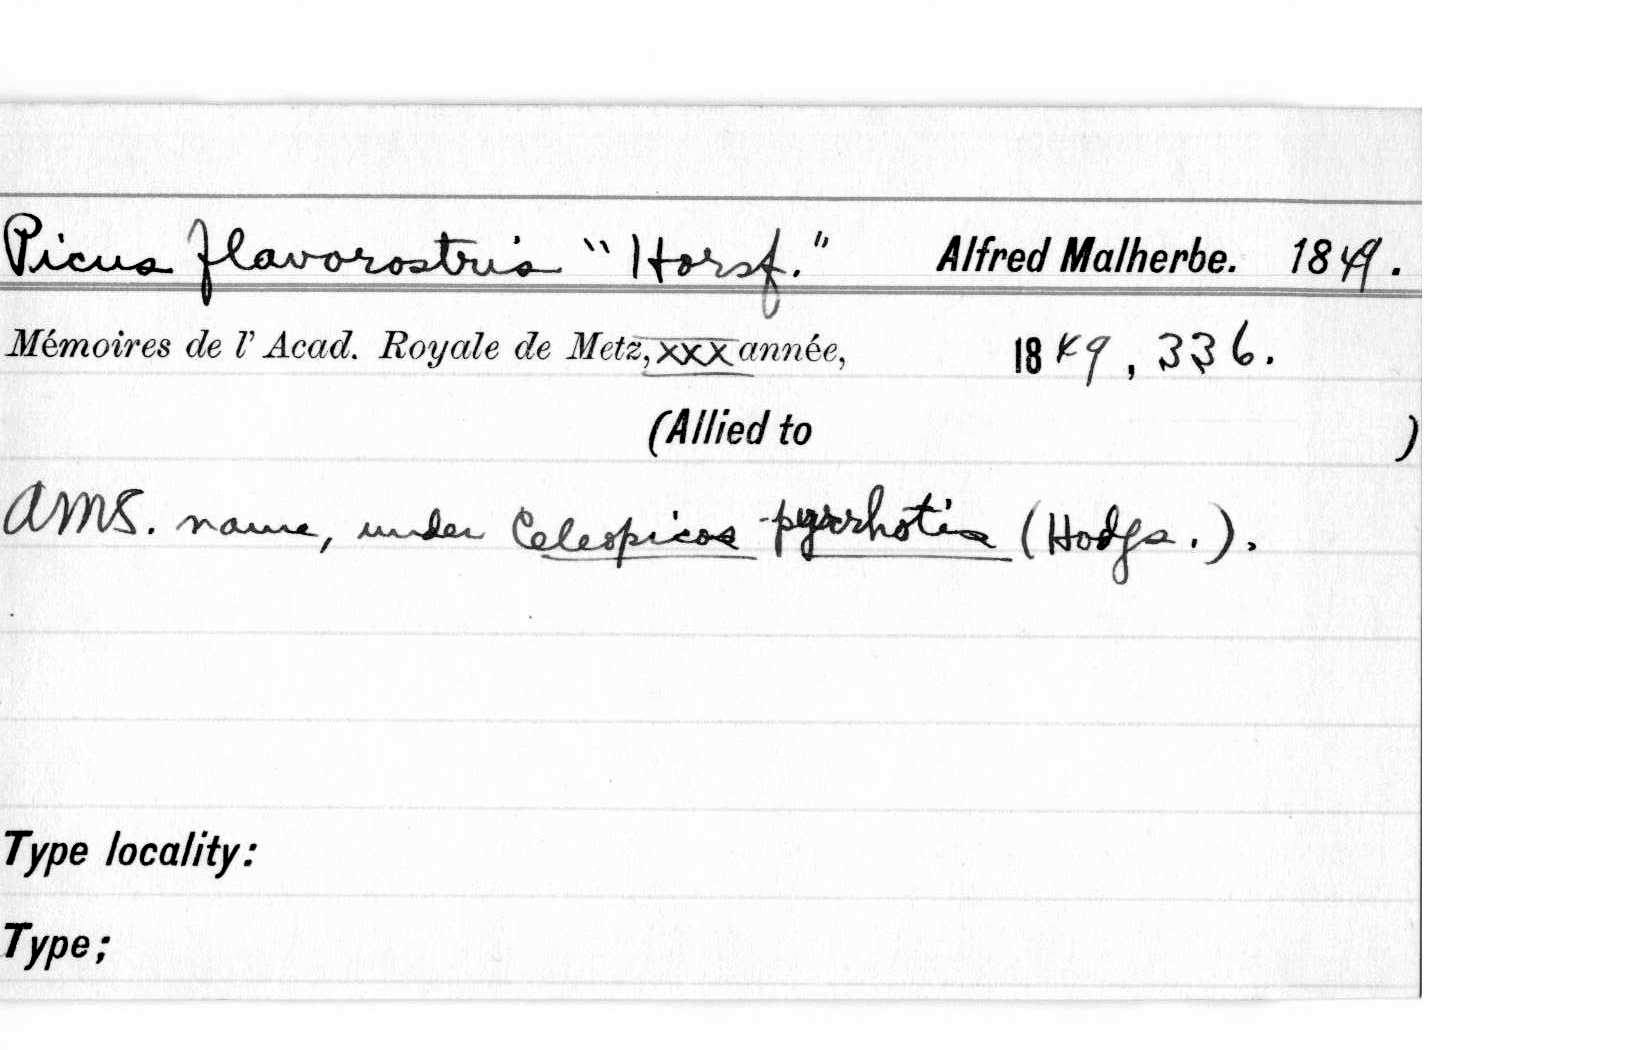 Picus flavorostris "Horsf." Alfred Malherbe. 1849.
Mémoires de l' Acad. Royale de Metz, XXX année, 1849, 336.
(Allied to )
a MS. name, under Celeopicos pyrrhotis (Hodgs.).
Type locality:
Type;